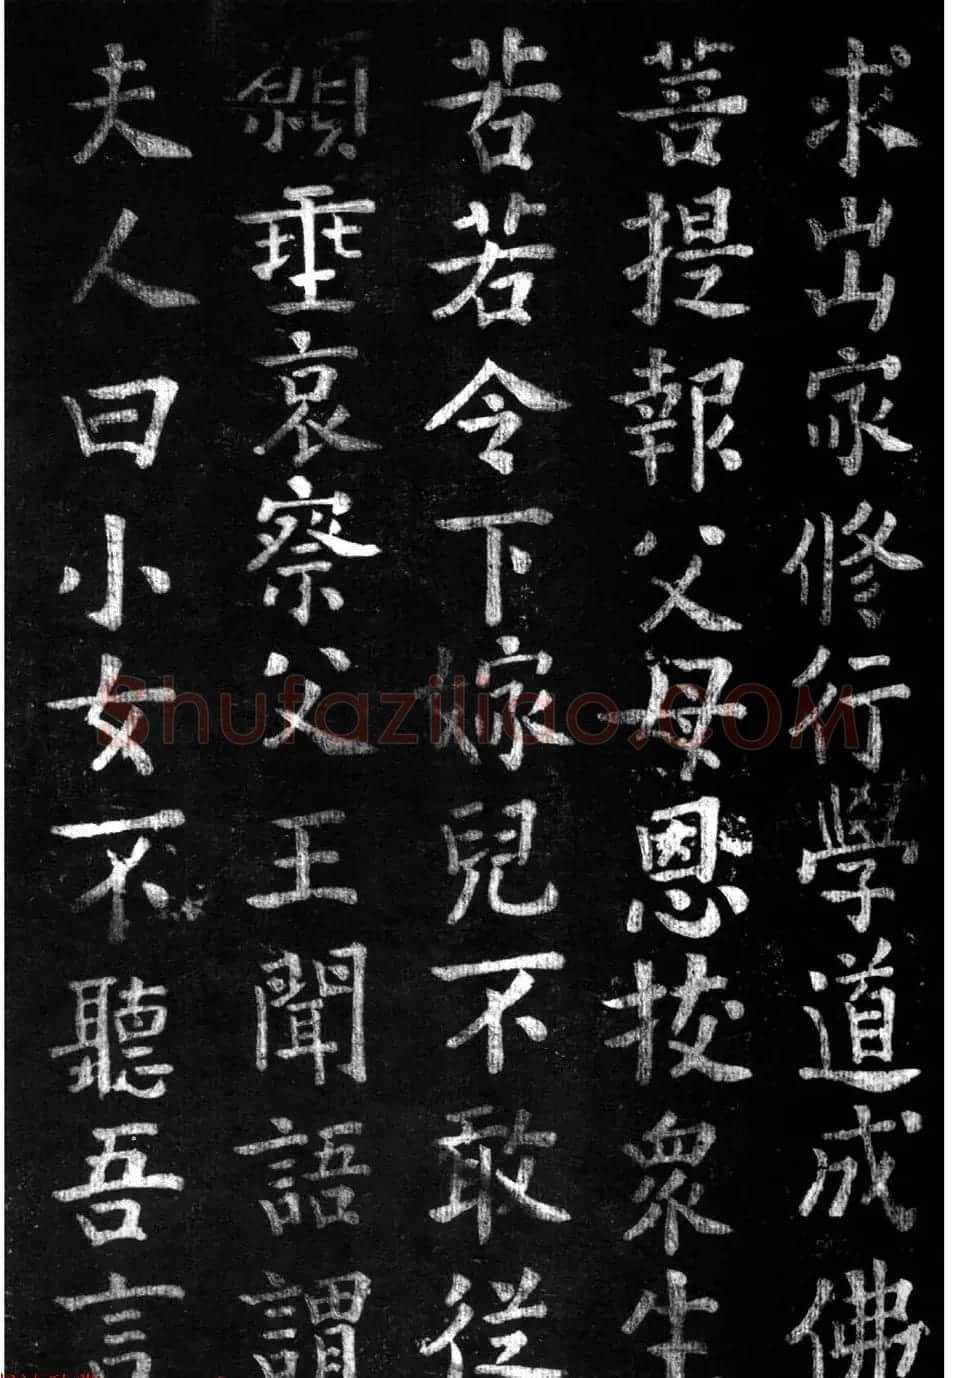 求出家修行學道成佛
菩提報父母恩拔衆生
苦若令下嫁兒不敢從
願垂哀察父王聞語謂
夫人曰小女不聽吾言
Shufaziliao.COM